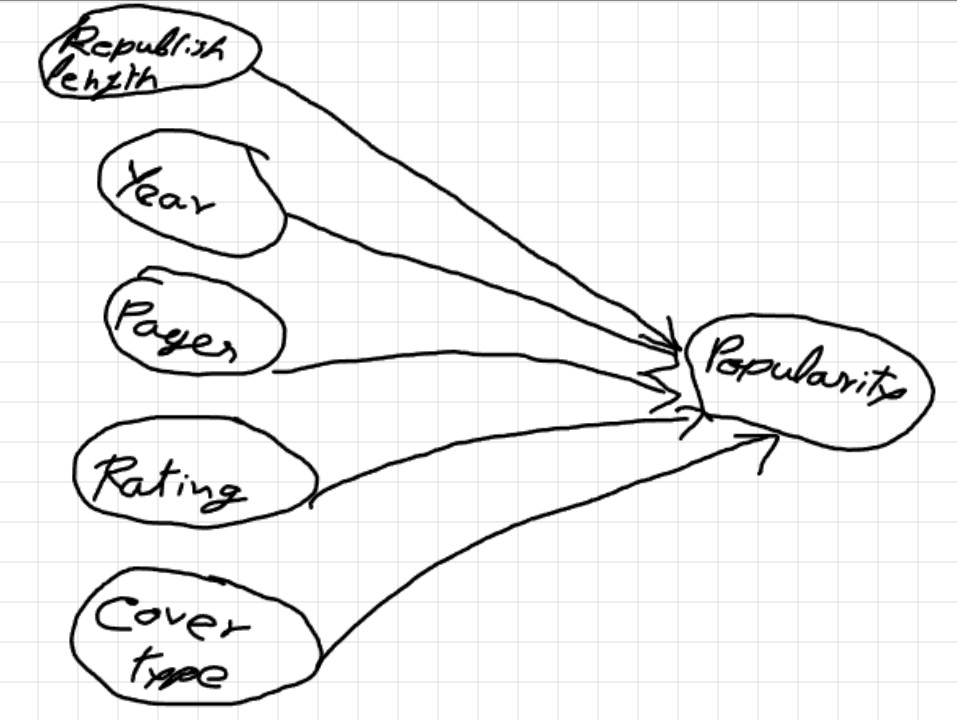 Republish
length
Year
Pages
Rating
Cover
type
Popularity